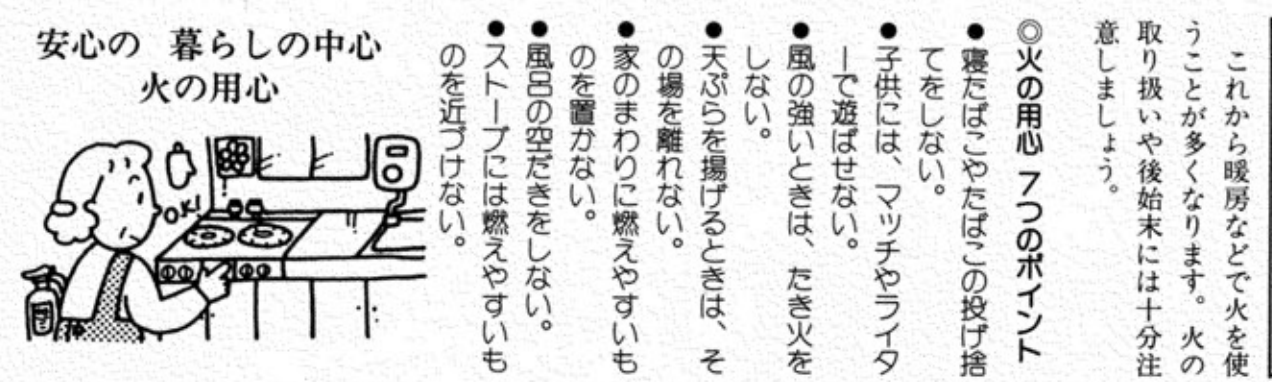 これから暖房などで火を使
うことが多くなります。火の
取り扱いや後始末には十分注
意しましょう。
◎火の用心 7つのポイント
●寝たばこやたばこの投げ捨
てをしない。
●子供には、マッチやライタ
ーで遊ばせない。
●風の強いときは、たき火を
しない。
●天ぷらを揚げるときは、そ
の場を離れない。
●家のまわりに燃えやすいも
のを置かない。
●風呂の空だきをしない。
●ストーブには燃えやすいも
のを近づけない。
安心の 暮らしの中心
火の用心
O.K!